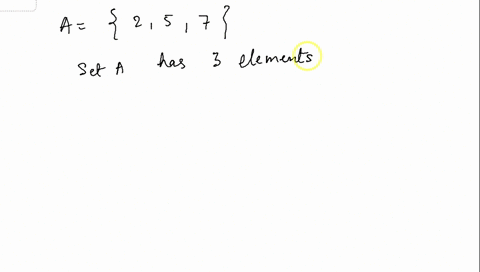 A= { 2, 5, 7 }
Set A has 3 elements